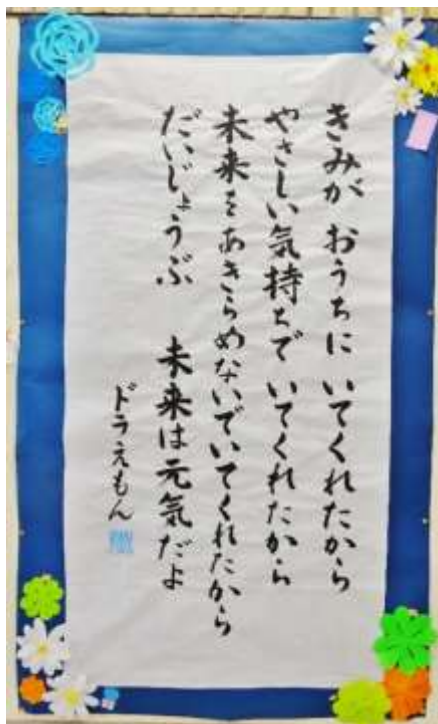 きみが おうちに いてくれたから
やさしい気持ちで いてくれたから
未来をあきらめないでいてくれたから
だいじょうぶ 未来は元気だよ
ドラえもん